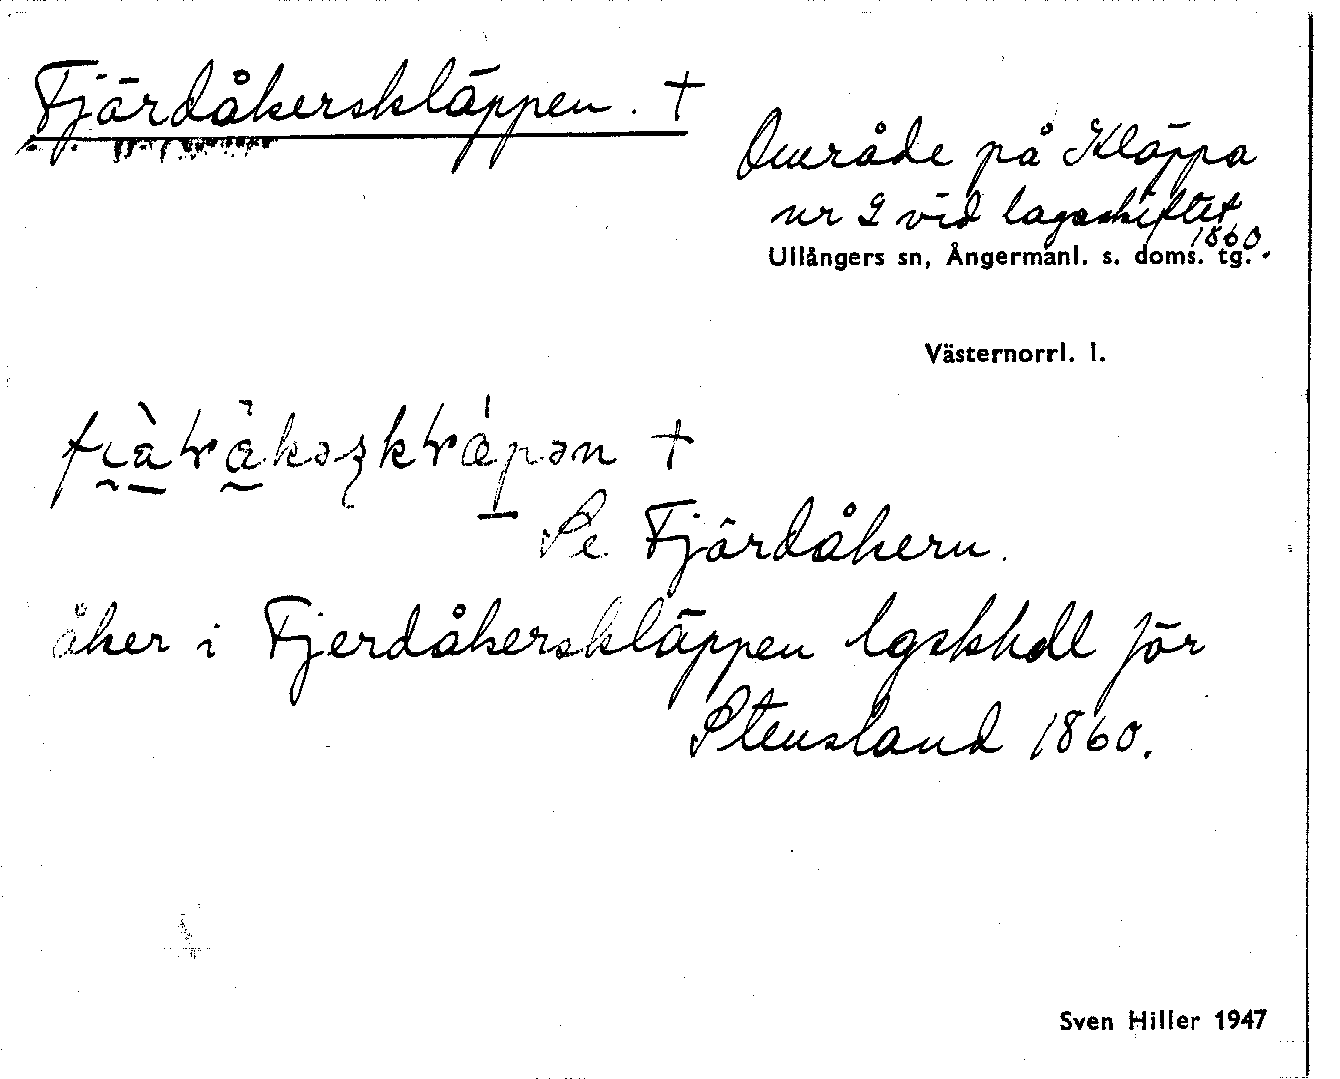 Fjärdåkerskläppen. †
Område på Kläppa
nr 2 vid lagaskiftet
1860.
Ullångers sn, Ångermanl. s. doms. tg.
Västernorrl. l.
†
Se Fjärdåkern.
åker i Fjerdåkerskläppen lgskhdl för
Stensland 1860.
Sven Hiller 1947